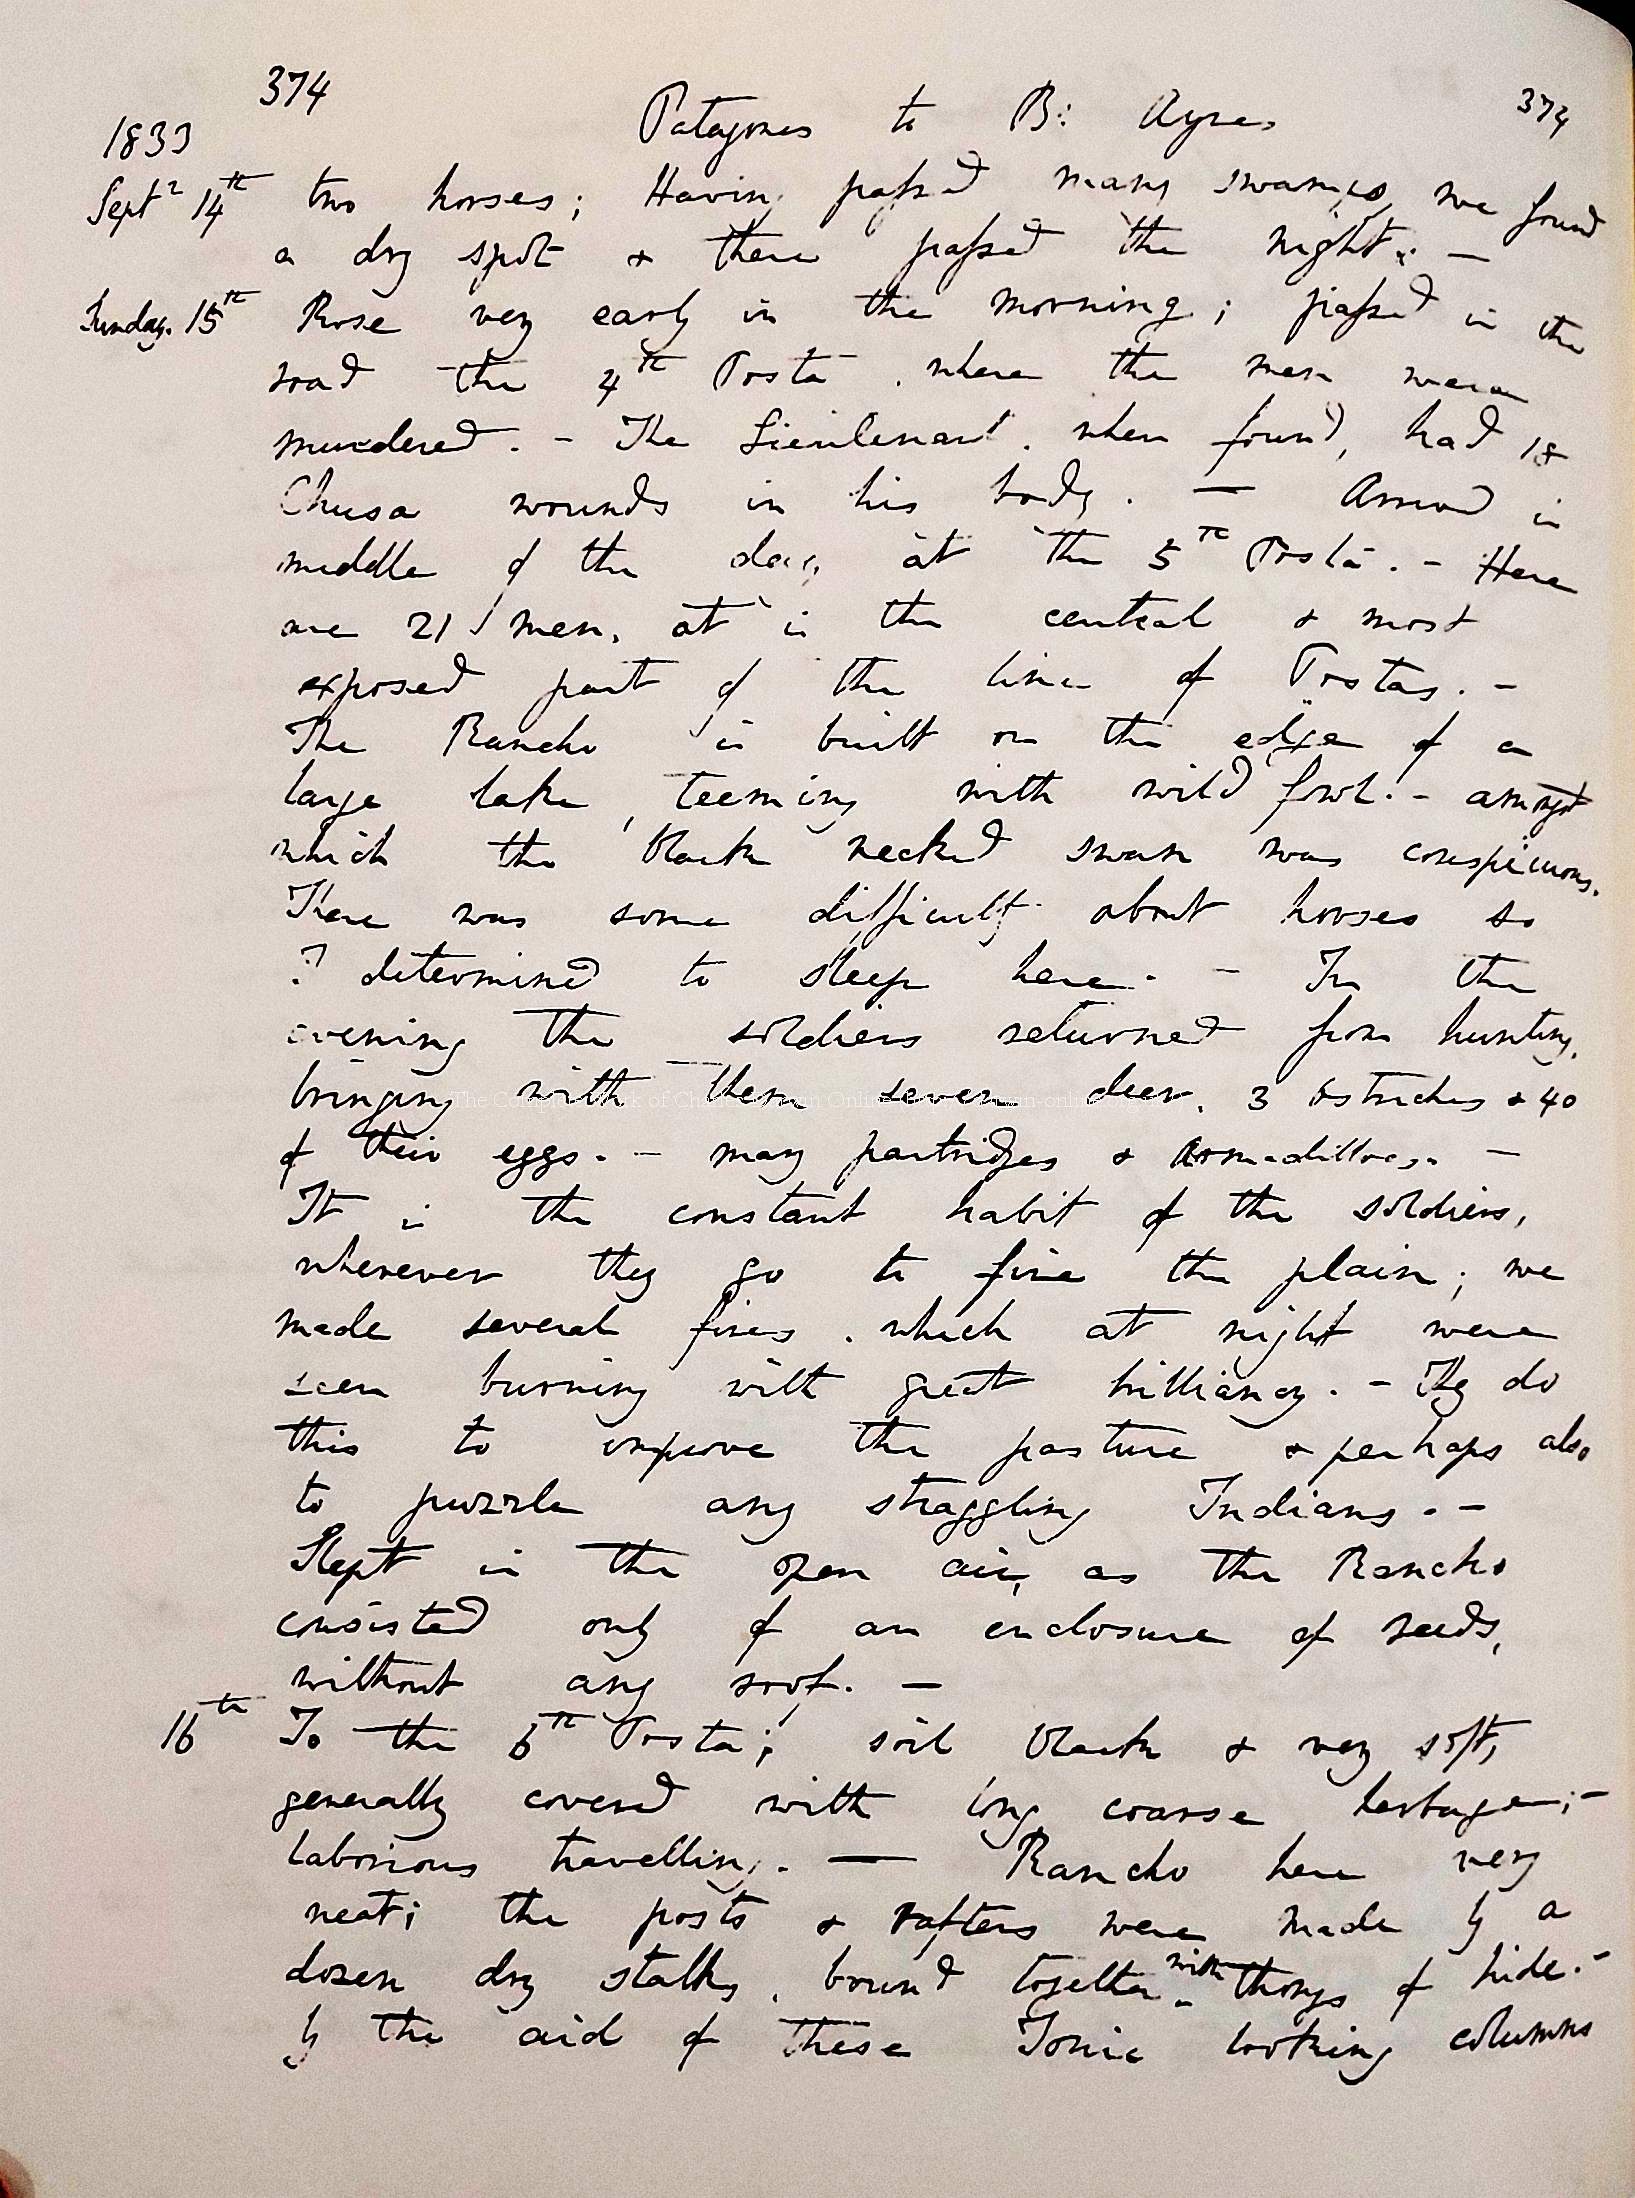 374 Patagones to B: Ayres 374
1833
Septr 14th two horses; Having passed many swamps, we found
a dry spot & there passed the night. —
Sunday. 15th Rose very early in the morning; passed in the
road the 4th Posta, where the men were
murdered. - The Lieutenant, when found, had 18
Chusa wounds in his body. — Arrived in
middle of the day at the 5th Posta. - Here
are 21 men, at is the central & most
exposed part of the line of Postas. -
The Rancho is built on the edge of a
large lake, teeming with wild fowl. - amongst
which the black necked swan was conspicuous.
There was some difficulty about horses so
I determined to sleep here. - In the
evening the soldiers returned from hunting,
bringing with them seven deer, 3 ostriches & 40
of their eggs. - many partridges & Armadilloes. —
It is the constant habit of the soldiers,
wherever they go to fire the plain; we
made several fires, which at night were
seen burning with great brilliancy. - They do
this to improve the pasture & perhaps also
to puzzle any straggling Indians. -
Slept in the open air, as the Rancho
consisted only of an enclosure of reeds,
without any roof. —
16th To the 6th Posta; soil black & very soft,
generally covered with long coarse herbage; -
laborious travelling. — Rancho here very
neat; the posts & rafters were made by a
dozen dry stalks, bound together with thongs of hide. -
by the aid of these Ionic looking columns
The Complete Work of Charles Darwin Online